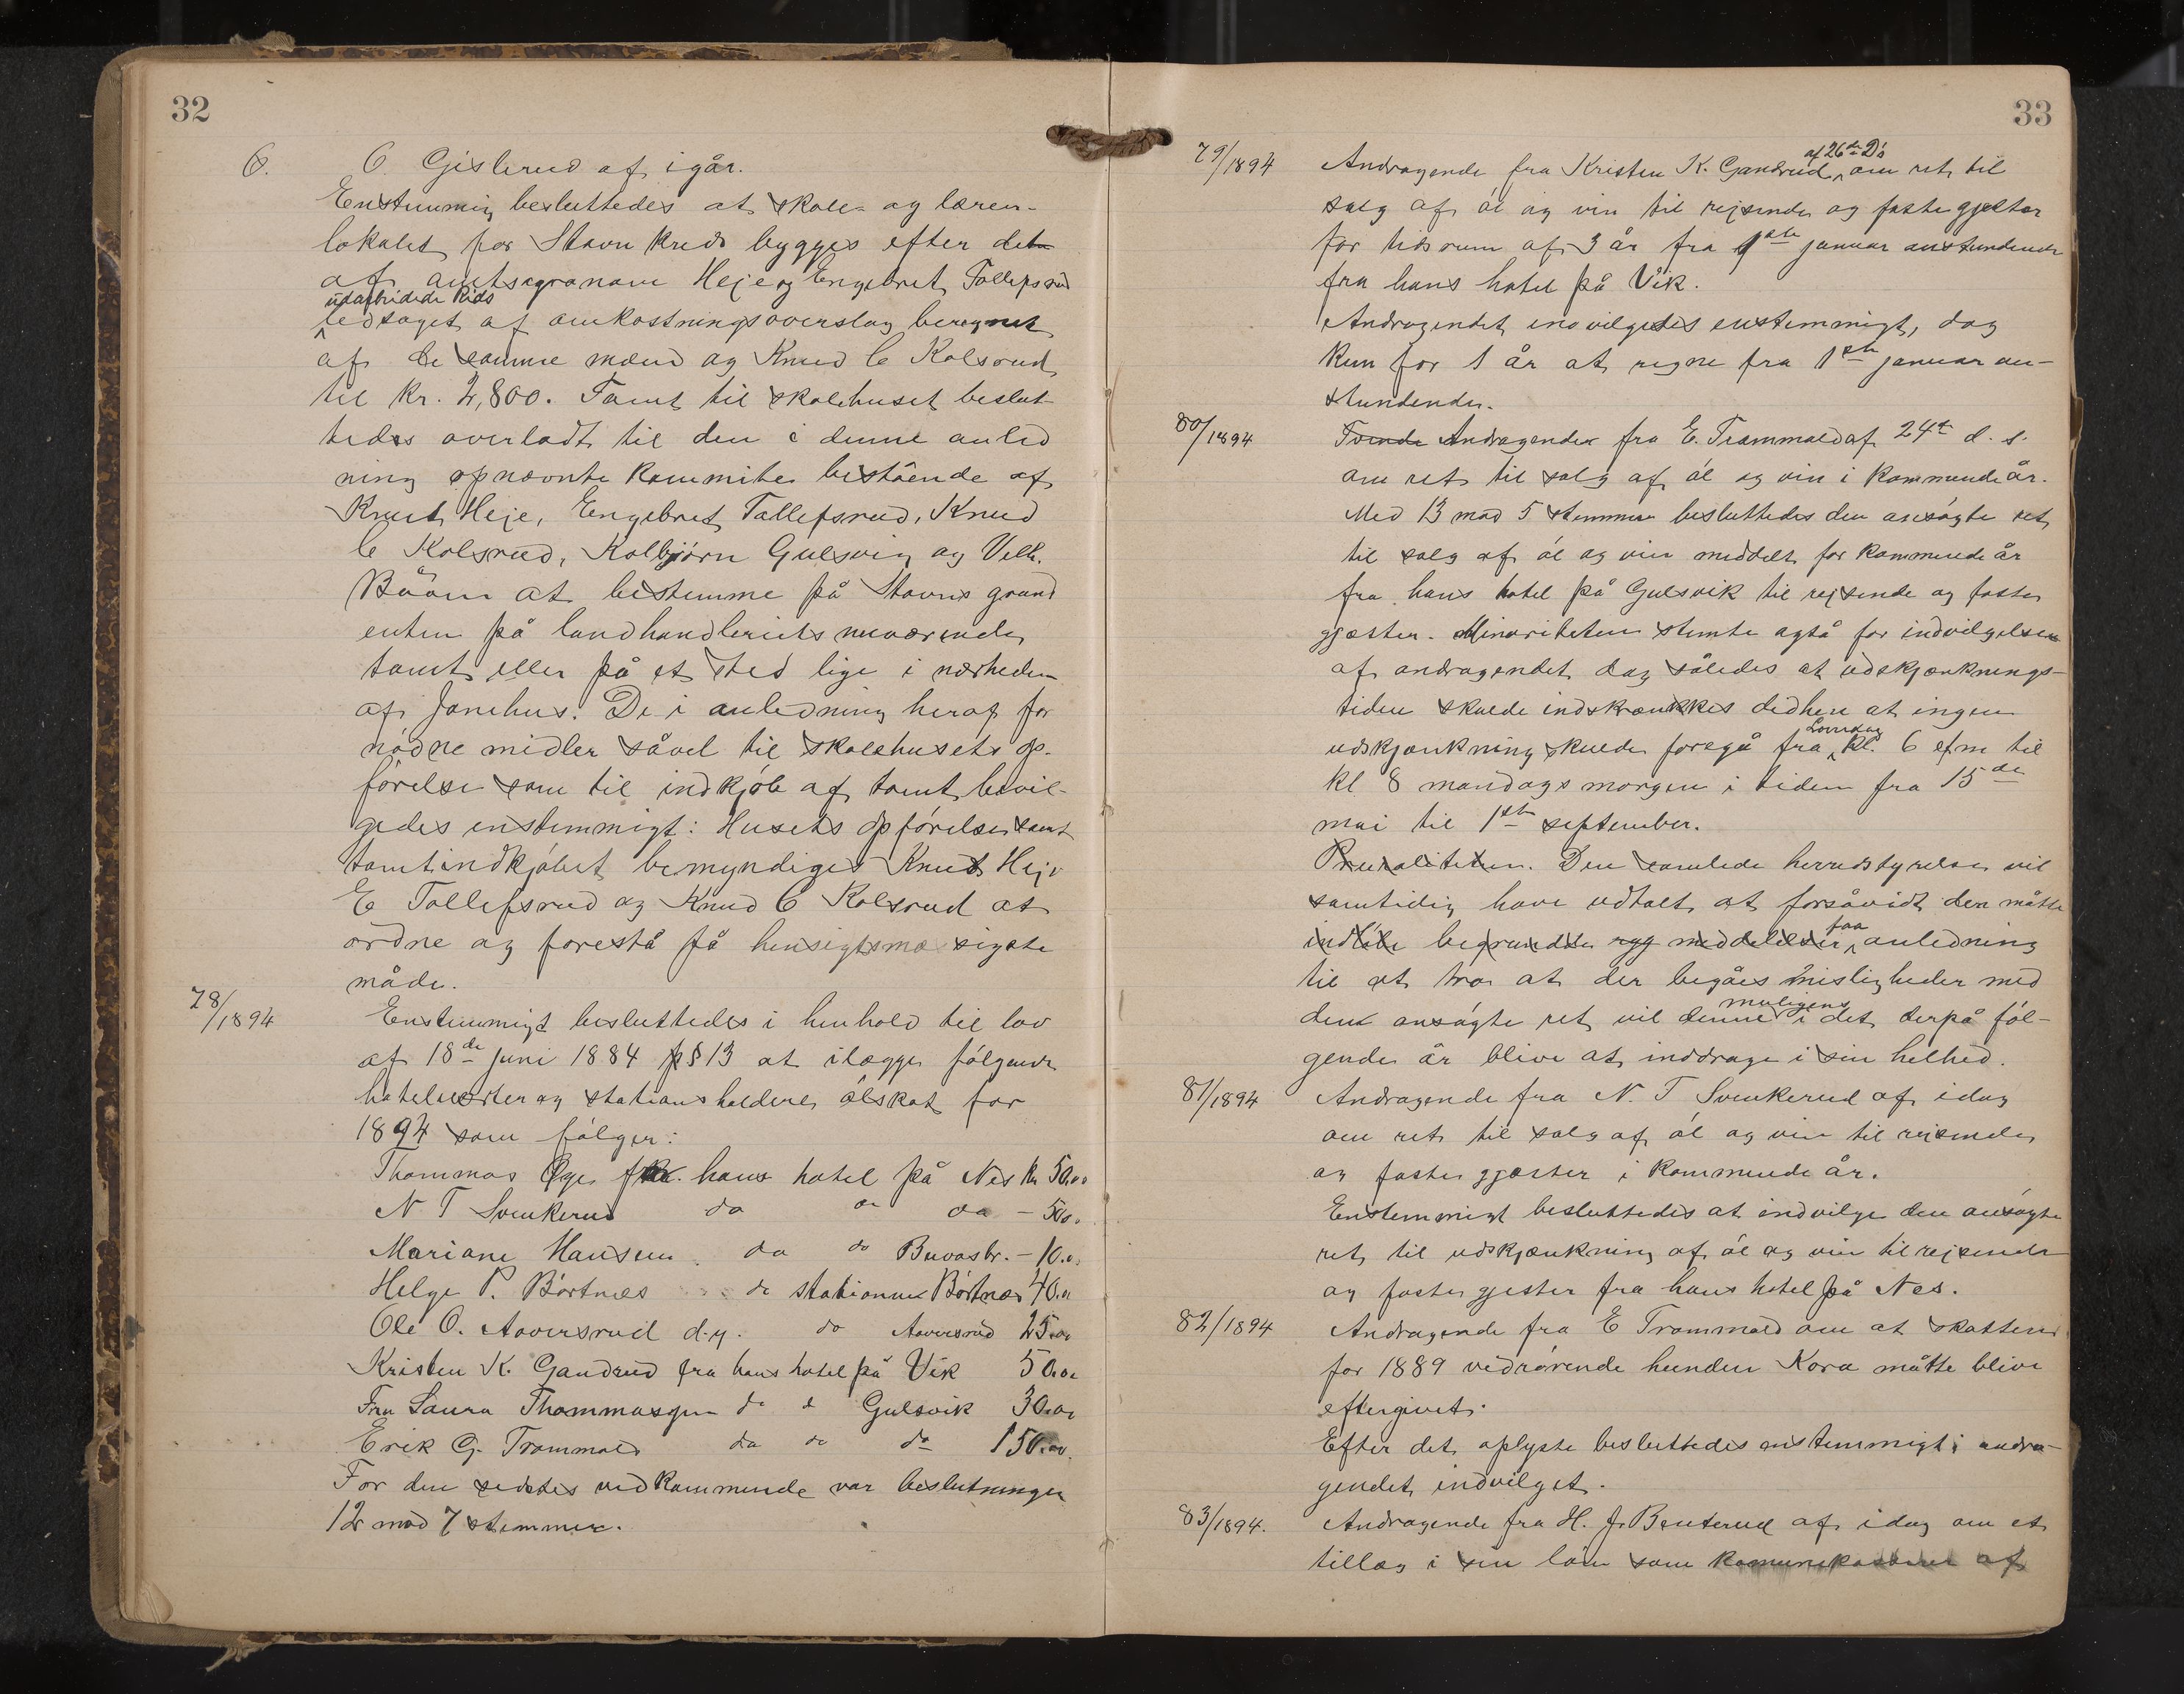 32
O. O. Gislerud af igår.
Enstemmig besluttedes at skole- og lærer-
lokalet for Stavn kreds bygges efter det
af amtsagronom Heje og Engebret Tollefsrud
udarbeidede Rids
ledsaget af omkostningsoverslag beregnet
af de samme mænd og Knud C Kolsrud
til kr. 2,800. Tomt til skolehuset beslut-
tedes overladt til den i denne anled
ning opnævnte kommite bestående af
Knut Heje, Engebret Tollefsrud, Knud
C Kolsrud, Kolbjörn Gulsvig og Velh.
Bööm at bestemme på Stavns grund
enten på landhandleriets nuværende
tomt eller på et sted lige i nærheden
af Jonehus. De i anledning heraf for
nödne midler såvel til skolehusets op-
förelse som til indkjöb af tomt bevil-
gedes enstemmigt: Husets opförelse samt
tomtindkjöbet bemyndiges Knut Heje
E Tollefsrud og Knud C Kolsrud at
ordne og forestå på hensigtsmæssigste
måde.
78/1894 Enstemmigt besluttedes i henhold til lov
af 18de juni 1884 § 13 at ilægge fölgende
hotelværter og stationsholdere ölskat for
1894 som fölger:
Thommas Öge fra hans hotel på Nes kr 50.00
N T Svenkerud do do do - 50.
Mariane Hansen do do Buvasbr. - 10.
Helge P. Börtnes do stationen Börtnes 40.
Ole O. Aaversrud d.y. do Aaversrud 25.00
Kristen K. Gandrud fra hans hotel på Vik 50.00
Fru Laura Thommasgen do do Gulsvik 30.00
Erik G. Trommald do do do 150.00
For den sidstes vedkommende var beslutningen
12 mod 7 stemmer.
33
79/1894 Andragende fra Kristen K. Gandrud af 26de Ds om ret til
salg af öl og vin til rejsende og faste gjester
for tidsrum af 3 år fra 1ste januar anstundende
fra hans hotel på Vik.
Andragendet indvilgedes enstemmigt, dog
kun for 1 år at regne fra 1ste januar an-
stundende.
80/1894 Tvende Andragender fra E. Trommald af 24de d. s.
om ret til salg af öl og vin i kommende år.
Med 13 mod 5 stemmer besluttedes den ansögte ret
til salg af öl og vin meddelt for kommende år
fra hans hotel på Gulsvik til rejsende og faste
gjæster. Minoriteten stemte også for indvilgelsen
af andragendet dog således at udskjænknings-
tiden skulde indskrænkes dedhen at ingen
udskjænkning skulde foregå fra Löverdag kl. 6 efm til
kl 8 mandags morgen i tiden fra 15de
mai til 1ste september.
Pluraliteten. Den samlede herredstyrelse vil
samtidig have udtalt at forsåvidt den måtte
indlöbe begrundede meddelelser faa anledning
til at tro at der begåes misligheder med
den ansögte ret vil denne muligens i det derpå föl-
gende år blive at inddrage i sin helhed.
81/1894 Andragende fra N. T Svenkerud af idag
om ret til salg af öl og vin til rejsende
og faste gjæster i kommende år.
Enstemmigt besluttedes at indvilge den ansögte
ret til udskjænkning af öl og vin til rejsende
og faste gjester fra hans hotel på Nes.
82/1894 Andragende fra E Trommald om at skatten
for 1889 vedrörende hunden Kora måtte blive
eftergivet.
Efter det oplyste besluttedes enstemmigt andra-
gendet indvilget.
83/1894. Andragende fra H. J. Benterud af idag om et
tillæg i sin lön som kommunekasserer af